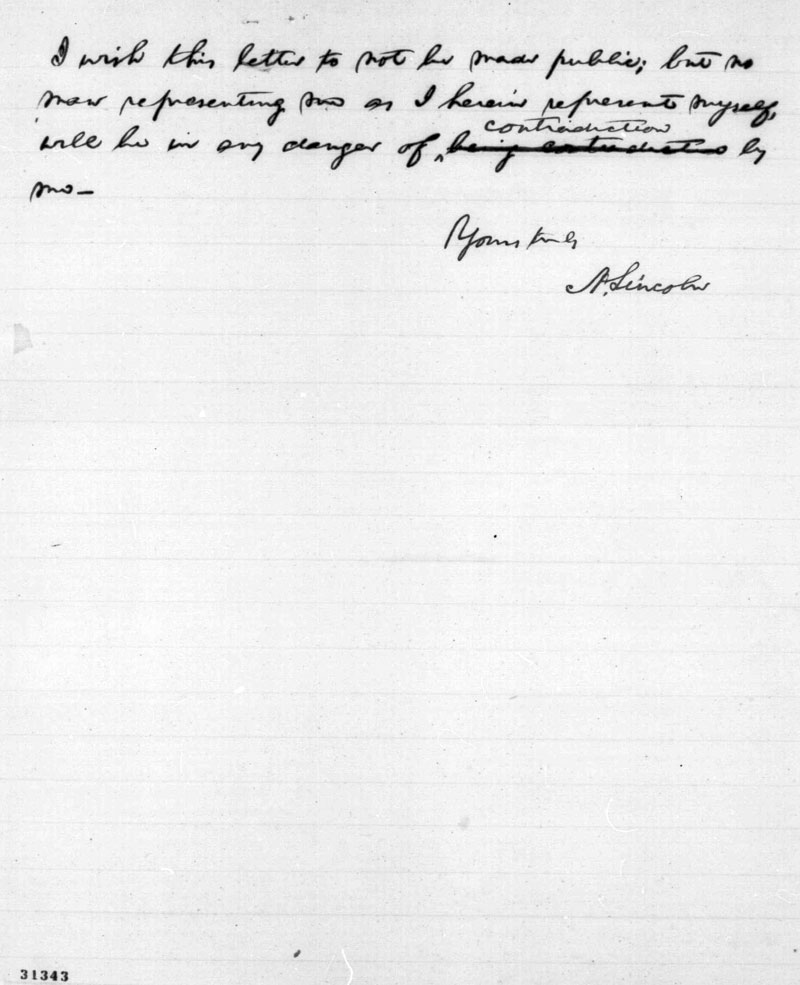 I wish this letter to not be made public; but no
man representing me as I herein represent myself,
contradiction
will be in any danger of ^ being contradicted by
me—
Yours truly
A. Lincoln
31343